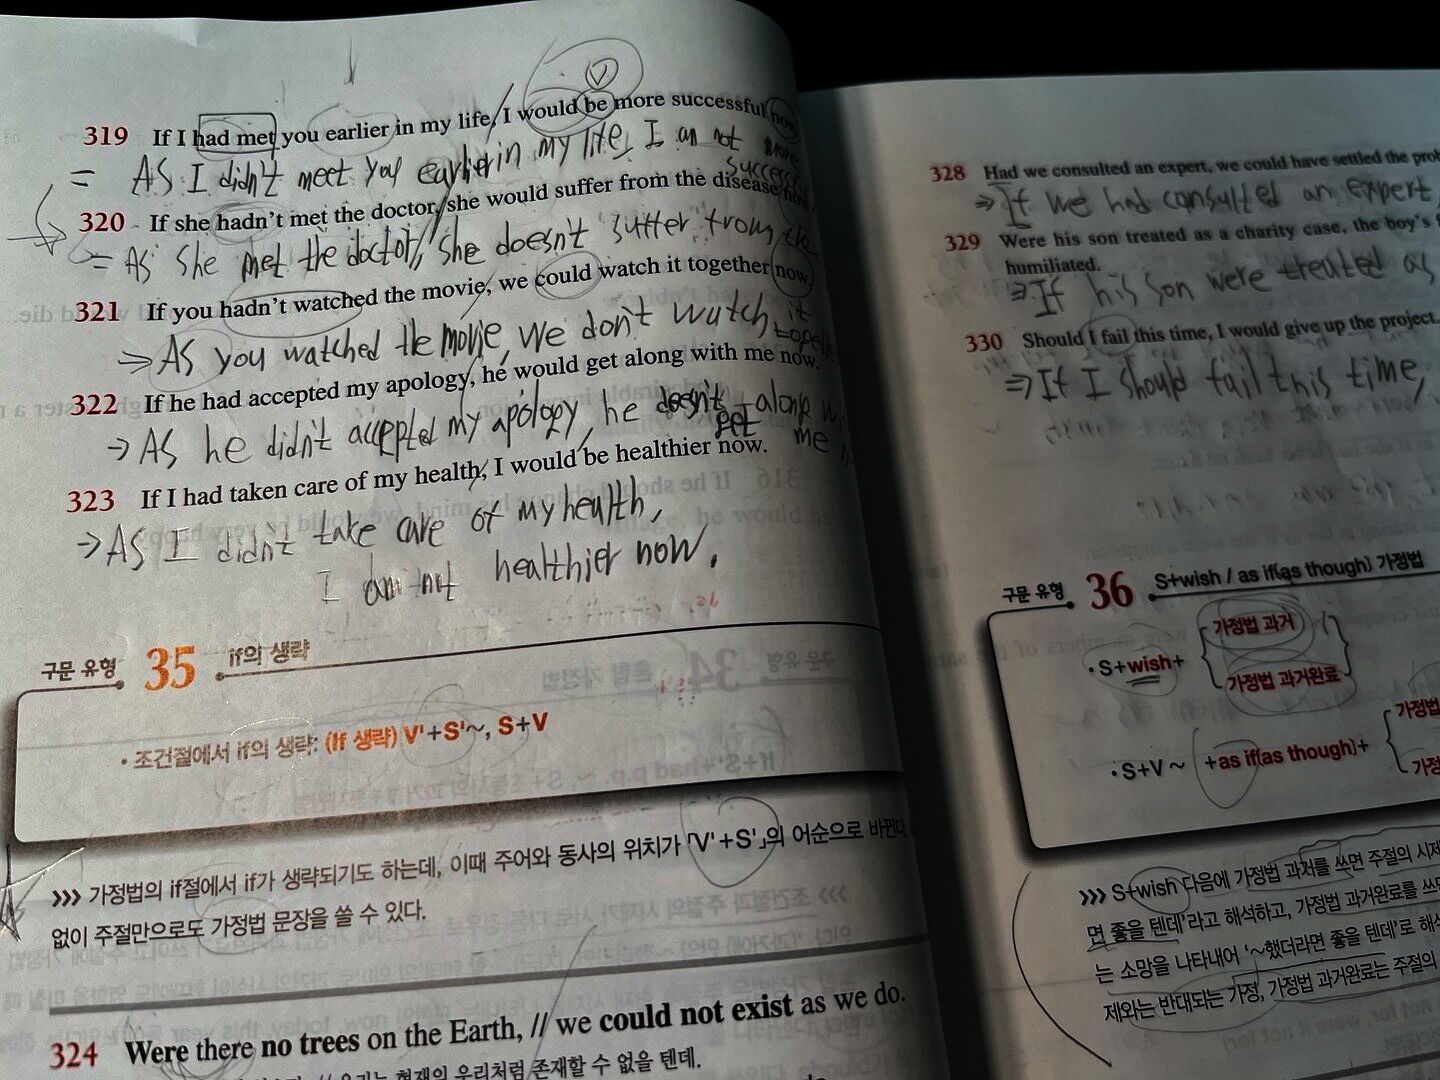 319 If I had met you earlier in my life, I would be more successful now
= AS I didn't meet you earlier in my life, I am not more
success
320 If she hadn't met the doctor, she would suffer from the disease now
= AS she met the doctor, she doesn't suffer from the
321 If you hadn't watched the movie, we could watch it together now.
⇒ AS you watched the movie, we don't watch it
322 If he had accepted my apology, he would get along with me now.
→ AS he didn't accepted my apology, he doesn't get along
me
323 If I had taken care of my health, I would be healthier now.
→ AS I didn't take care of my health,
I am not healthier now.
구문 유형 35 if의 생략
• 조건절에서 if의 생략: (If 생략) V'+S'~, S+V
>>> 가정법의 if절에서 if가 생략되기도 하는데, 이때 주어와 동사의 위치가 「V'+S'」의 어순으로 바뀐다.
없이 주절만으로도 가정법 문장을 쓸 수 있다.
324 Were there no trees on the Earth, // we could not exist as we do.
// 우리는 현재의 우리처럼 존재할 수 없을 텐데.
328 Had we consulted an expert, we could have settled the
⇒ If we had consulted an expert,
329 Were his son treated as a charity case, the boy's
humiliated.
⇒ If his son were treated as
330 Should I fail this time, I would give up the project.
⇒ If I should fail this time,
구문 유형 36 S+wish / as if(as though) 가정법
• S+wish+
가정법 과거
가정법 과거완료
• S+V ~ +as if(as though)+
>>> S+wish 다음에 가정법 과거를 쓰면 주절의
면 좋을 텐데'라고 해석하고, 가정법 과거완료를
는 소망을 나타내어 '~했더라면 좋을 텐데'로
제와는 반대되는 가정, 가정법 과거완료는 주절의